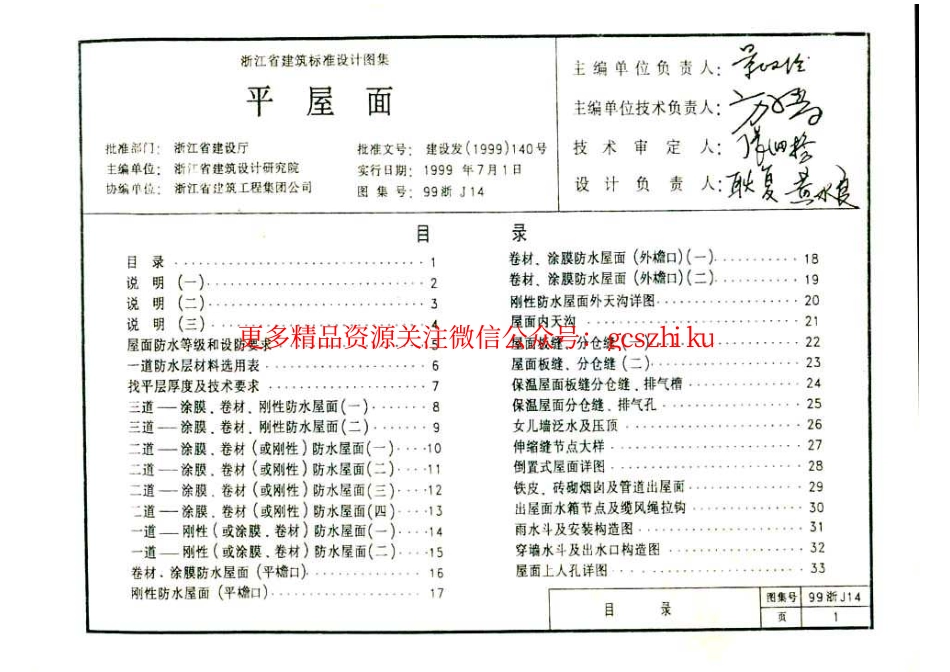 浙江省建筑标准设计图集
平屋面
批准部门：浙江省建设厅
主编单位：浙江省建筑设计研究院
协编单位：浙江省建筑工程集团公司
批准文号：建设发(1999)140号
实行日期：1999年7月1日
图集号：99浙J14
主编单位负责人：
主编单位技术负责人：
技术审定人：
设计负责人：耿复 黄水良
目录
目录 1
说明(一) 2
说明(二) 3
说明(三) 4
屋面防水等级和设防要求 5
一道防水层材料选用表 6
找平层厚度及技术要求 7
三道—涂膜、卷材、刚性防水屋面(一) 8
三道—涂膜、卷材、刚性防水屋面(二) 9
二道—涂膜、卷材(或刚性)防水屋面(一) 10
二道—涂膜、卷材(或刚性)防水屋面(二) 11
二道—涂膜、卷材(或刚性)防水屋面(三) 12
二道—涂膜、卷材(或刚性)防水屋面(四) 13
一道—刚性(或涂膜、卷材)防水屋面(一) 14
一道—刚性(或涂膜、卷材)防水屋面(二) 15
卷材、涂膜防水屋面(平檐口) 16
刚性防水屋面(平檐口) 17
卷材、涂膜防水屋面(外檐口)(一) 18
卷材、涂膜防水屋面(外檐口)(二) 19
刚性防水屋面外天沟详图 20
屋面内天沟 21
屋面板缝、分仓缝(一) 22
屋面板缝、分仓缝(二) 23
保温屋面板缝分仓缝、排气槽 24
保温屋面分仓缝、排气孔 25
女儿墙泛水及压顶 26
伸缩缝节点大样 27
倒置式屋面详图 28
铁皮、砖砌烟囱及管道出屋面 29
出屋面水箱节点及缆风绳拉钩 30
雨水斗及安装构造图 31
穿墙水斗及出水口构造图 32
屋面上人孔详图 33
更多精品资源关注微信公众号：gcszhiku
目录
图集号 99浙J14
页 1